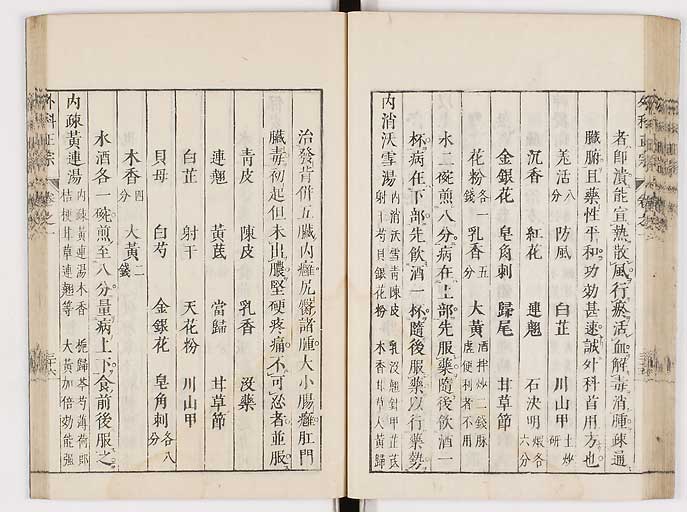 者卽潰能宣熱散風行瘀活血解毒消腫疎通
臟腑且藥性平和功効甚速誠外科首用方也
羗活八分 防風 白芷 川山甲土炒研
沉香 紅花 連翹 石決明煅各六分
金銀花 皂角刺 歸尾 甘草節
花粉各一錢 乳香五分 大黃酒拌炒二錢脉虛便利者不用
水二碗煎八分病在上部先服藥隨後飲酒一
杯病在下部先飲酒一杯隨後服藥以行藥勢
內消沃雪湯 內消沃雪靑陳皮 乳沒翹針甲芷芪 射干芍貝銀花粉 木香甘草大黃歸
治發背併五臟內癰尻臀諸腫大小腸癰肛門
臟毒初起但未出膿堅硬疼痛不可忍者並服
靑皮 陳皮 乳香 沒藥
連翹 黃芪 當歸 甘草節
白芷 射干 天花粉 川山甲
貝母 白芍 金銀花 皂角刺各八分
木香四分 大黃二錢
水酒各一碗煎至八分量病上下食前後服之
內疎黃連湯 內疎黃連湯木香 梔歸芩芍薄荷榔 桔梗甘草連翹等 大黃加倍効能强
外科正宗